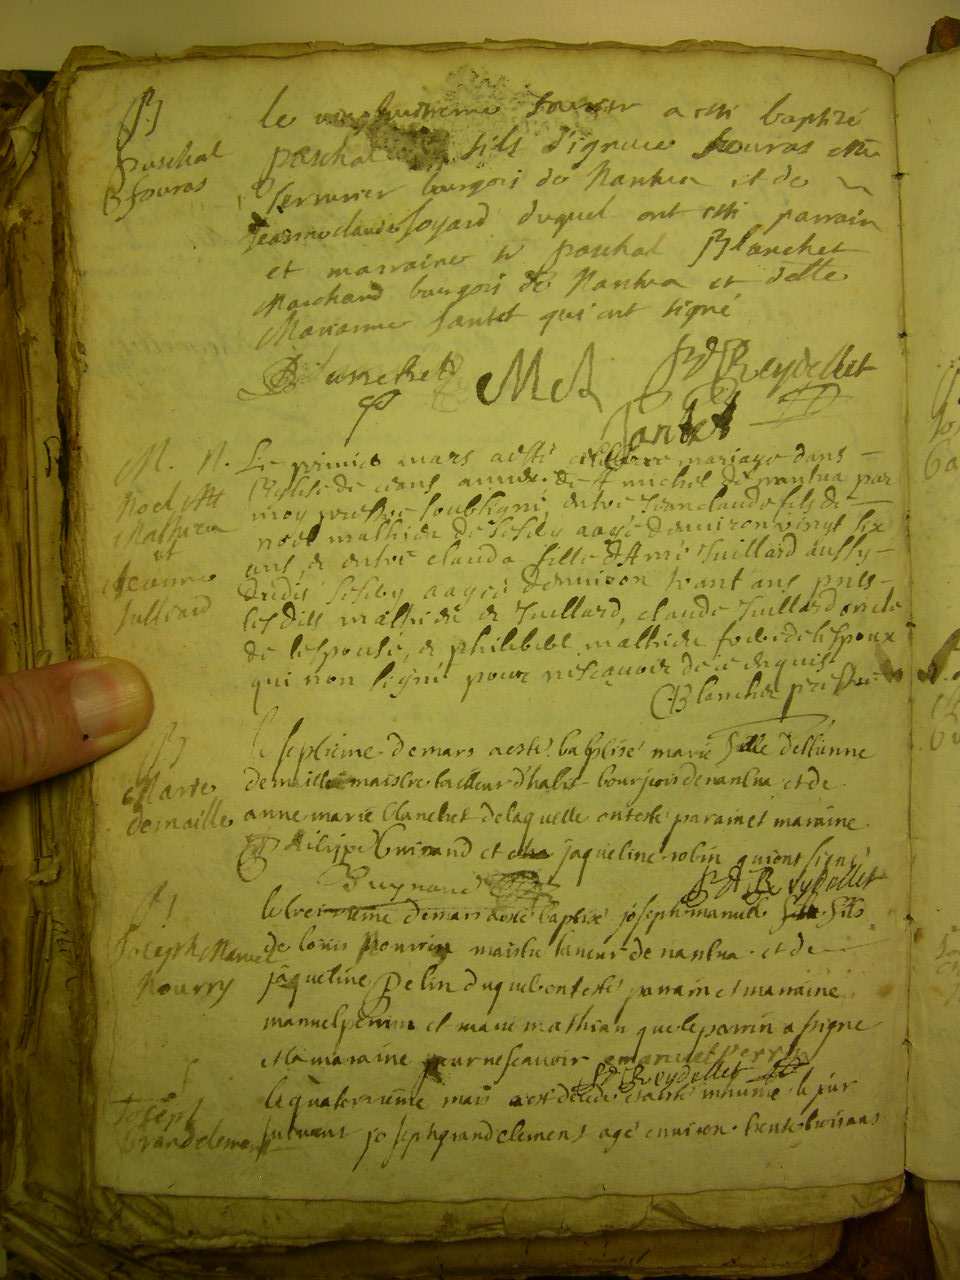 B
paschal
fouras
le vingthuitieme fevrier a esté baptizé
paschal fils d'ignace fouras mtre
serrurier bourgois de Nantua et de
Jeanne claude foyard duquel ont esté parrain
et marraine sr paschal Blanchet
Marchand bourgois de Nantua et delle
Marianne Jantet qui ont signé
Blanchet
Reydellet
Jantet
M. N.
Noel
Mathieu
et
Jeanne
Juillard
Le premier mars a esté celebré mariage dans
leglise de st michel de nantua par
moy prestre soubsigné, entre Jean claude fils de
noel mathieu de aagé denviron vingt six
ans, & entre claude fille d'Amé Juillard aussy
dudit aagé denviron trant ans, pnts
lesdits mathieu & Juillard, claude Juillard oncle
de lespouse, & philibert mathieu frere de lespoux
qui non signé pour ne sçavoir de ce enquis
Blanchet prestre
B
Marie
demaille
le septieme de mars a esté baptisé marie fille d'estienne
demaille maistre tailleur d'habit bourjois de nantua et de
anne marie blanchet de laquelle ont esté parain et maraine
philippe Guinand et jaqueline robin qui ont signé
Reydellet
B
Joseph Manuel
Nourry
le treizieme de mars a esté baptisé joseph manuel fils
de louis maistre taneur de nantua et de
jaqueline Pelin duquel ont esté parrain et marraine
manuel perrin et marie mathieu que le parrin a signé
et la maraine pour ne scavoir emanuel perrin
Reydellet
Joseph
Grandclement
le quatorzieme mars est decedé et a esté inhumé le jour
suivant joseph grandclement agé environ trente trois ans